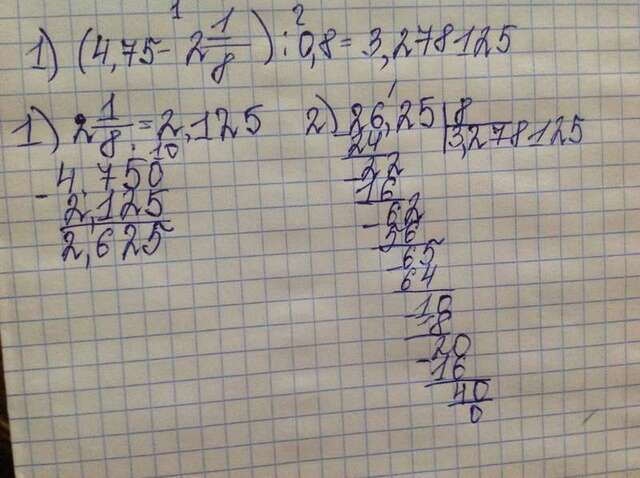 1 2
1) (4,75 - 2 1/8) : 0,8 = 3,278125
1) 2 1/8 = 2,125
10
4,750
- 2,125
2,625
2) 26,25 | 8
24 | 3,278125
- 22
16
- 62
56
- 65
64
- 10
8
- 20
16
40
0